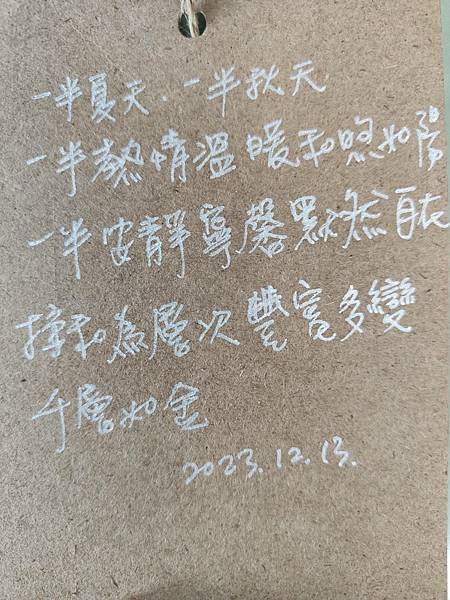 一半夏天.一半秋天
一半熱情溫暖和煦如陽
一半安靜寧馨默然自在
揉和為層次豐富多變
千層如金
2023.12.13.